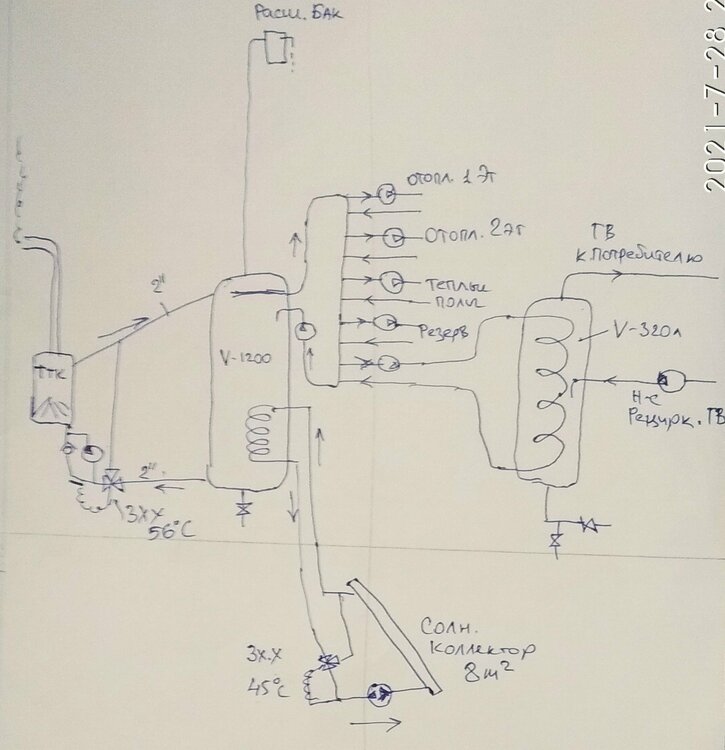 Расш. БАК
2021-7-28
отопл. 1 Эт
Отопл. 2 эт
Теплые
полы
Резерв
ГВ
к потребителю
2"
ТТК
V-1200
V-320л
Н-с
Рецирк. ГВ
2"
3х.х
56°C
Солн.
коллектор
8m²
3х.х
45°C